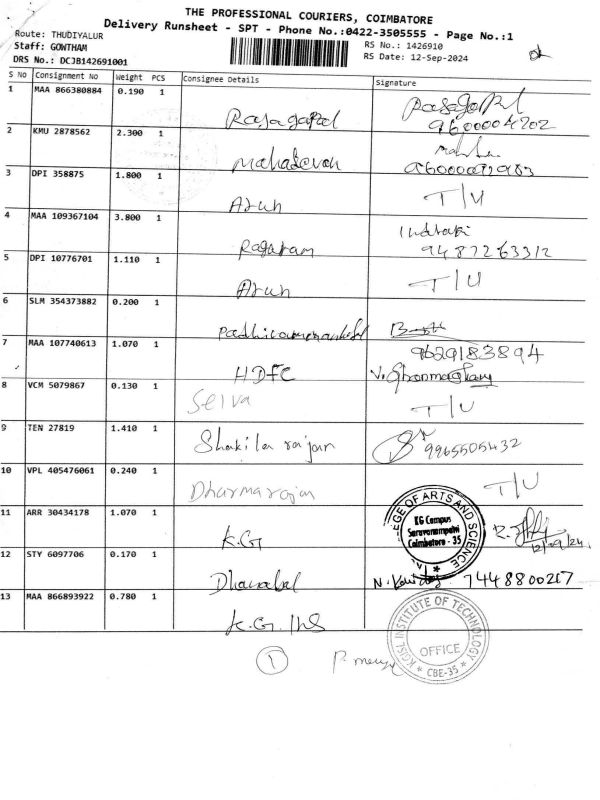 THE PROFESSIONAL COURIERS, COIMBATORE
Delivery Runsheet - SPT - Phone No.:0422-3505555 - Page No.:1
Route: THUDIYALUR
Staff: GOWTHAM
DRS No.: DCJB142691001
RS No.: 1426910
RS Date: 12-Sep-2024
S No Consignment No Weight PCS Consignee Details Signature
1 MAA 866380884 0.190 1 Rajagopal
9600004202
2 KMU 2878562 2.300 1 Mahadevan
3 DPI 358875 1.800 1 Arun T/U
4 MAA 109367104 3.800 1 Rajaram
9487263312
5 DPI 10776701 1.110 1 Arun T/U
6 SLM 354373882 0.200 1
7 MAA 107740613 1.070 1 HDFC 9629183894
8 VCM 5079867 0.130 1 Selva T/U
9 TEN 27819 1.410 1 Shakila rajan 9965505432
10 VPL 405476061 0.240 1 Dharmarajan T/U
11 ARR 30434178 1.070 1 K.G
OF ARTS AND SCIENCE
KG Campus
Saravanampatti
Coimbatore - 35
12/09/24
12 STY 6097706 0.170 1 Dhanabal 7448800217
13 MAA 866893922 0.780 1 K.G. Ins
KGISL INSTITUTE OF TECHNOLOGY
OFFICE
* CBE-35 *
1